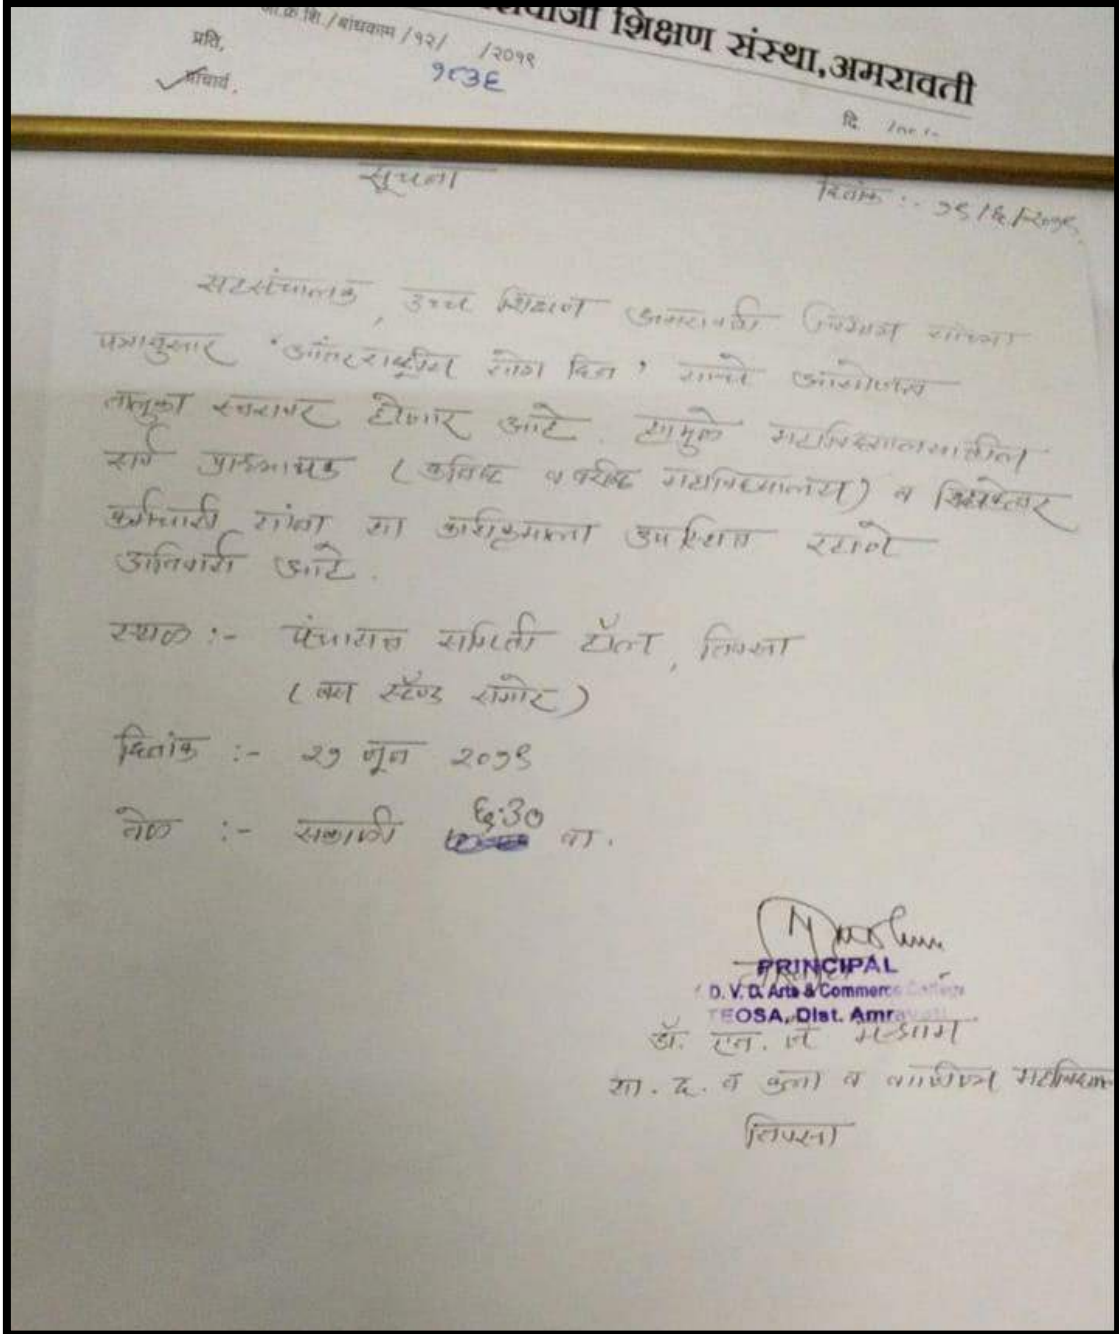 शिक्षण संस्था,अमरावती
जा.क्र.शि./बांधकाम /१२/ /२०१९
१८३६
प्रति,
प्राचार्य.
दि.
सूचना
दिनांक :- १९/६/२०१९
सहसंचालक, उच्च शिक्षण अमरावती विभाग यांच्या
पत्रानुसार 'आंतरराष्ट्रीय योग दिन' याचे आयोजन
तालुका स्तरावर होणार आहे. त्यामुळे महाविद्यालयातील
सर्व प्राध्यापक (कनिष्ठ व वरीष्ठ महाविद्यालय) व शिक्षकेत्तर
कर्मचारी यांना या कार्यक्रमाला उपस्थित राहणे
अनिवार्य आहे.
स्थळ :- पंचायत समिती हॉल, तिवसा
(बस स्टॅण्ड समोर)
दिनांक :- २१ जून २०१९
वेळ :- सकाळी ६:३० वा.
PRINCIPAL
D. V. D. Arts & Commerce College
TEOSA, Dist. Amravati
डॉ. एन. जे. मेश्राम
या. द. व कला व वाणिज्य महाविद्यालय
तिवसा